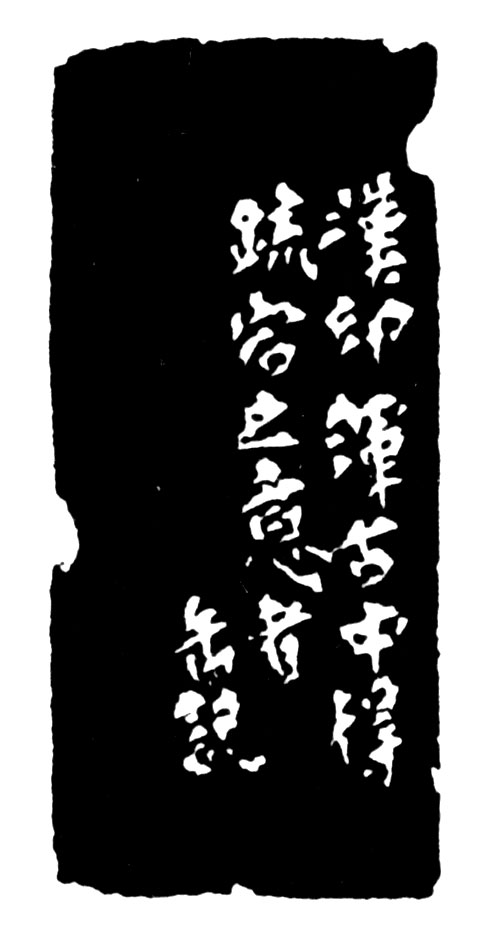 漢印渾古中得
疏宕之意者
缶記